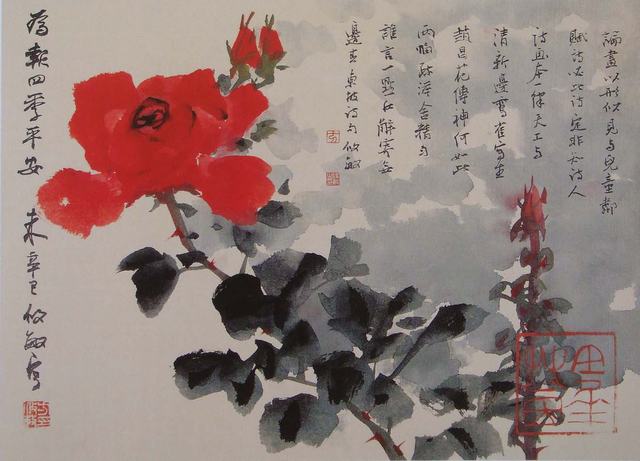 論畫以形似見与兒童鄰
賦詩必此詩定非知詩人
詩画本一律天工与
清新邊鸞雀寫生
趙昌花傳神何如此
兩幅疏澹含精勻
誰言一點紅解寄無
邊春東坡詩句 敏
為報四季平安 辛巳 敏寫